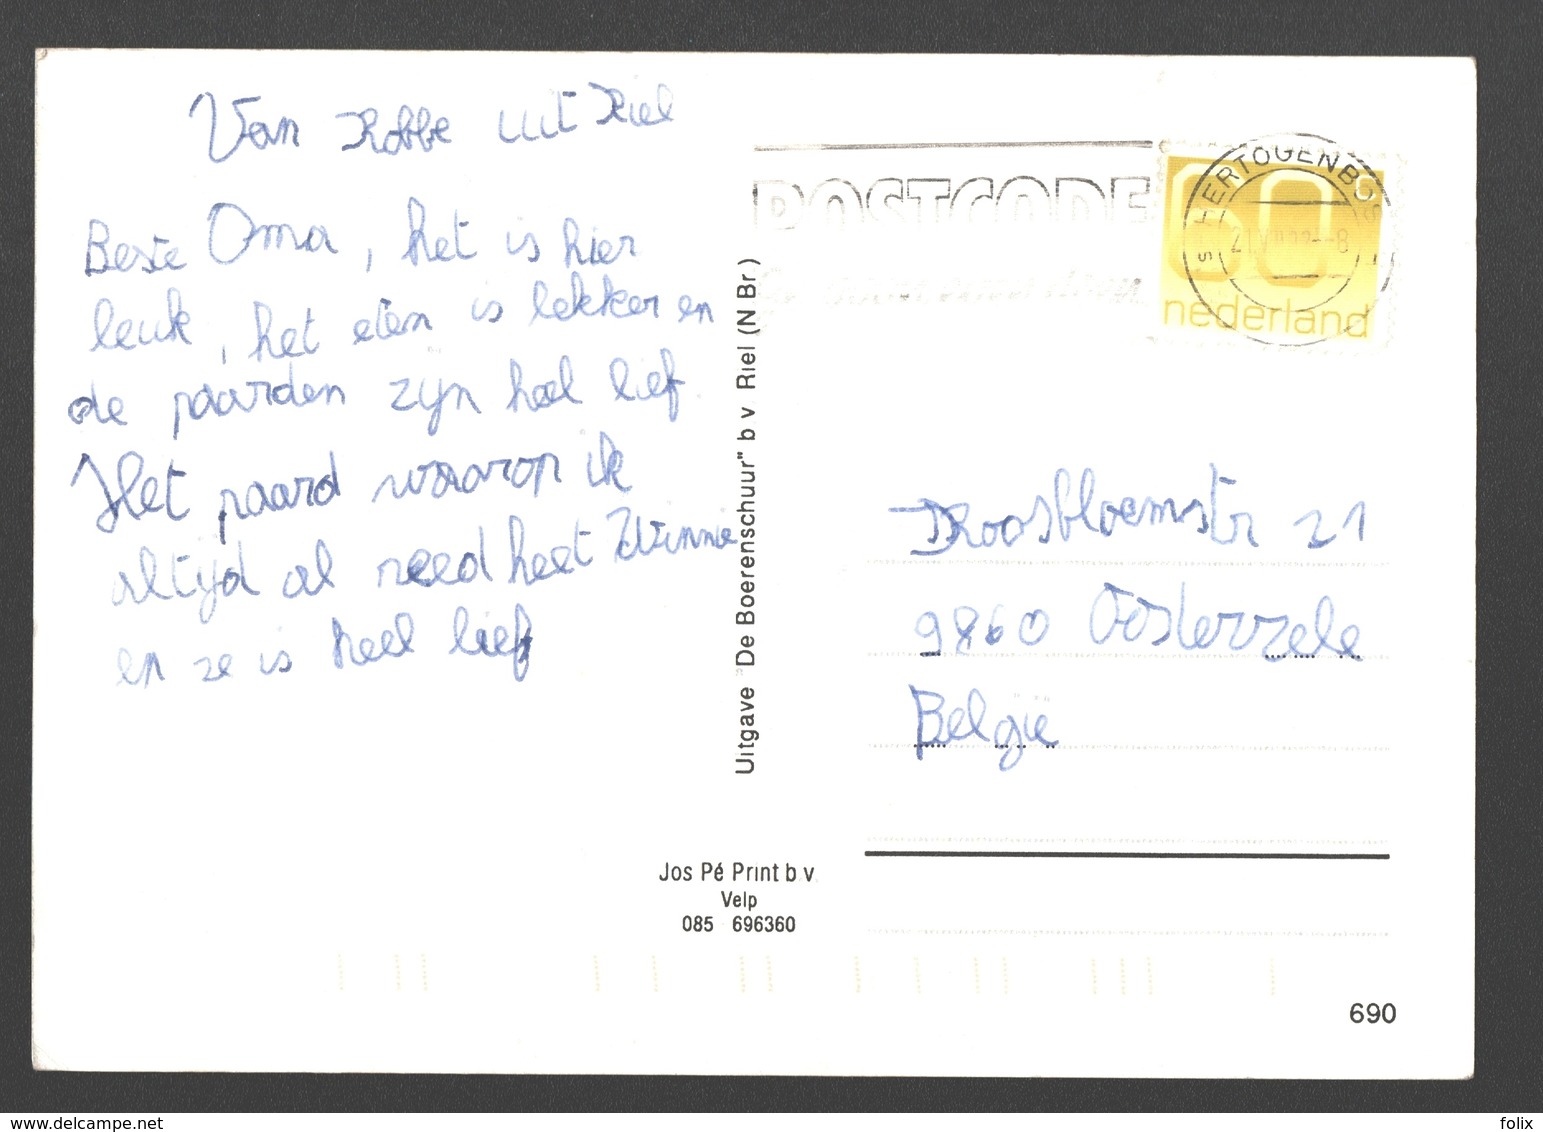 Van Robbe uit Riel
Beste Oma, het is hier
leuk, het eten is lekker en
de paarden zijn heel lief
Het paard waarop ik
altijd al reed heet Winnie
en ze is heel lief
Uitgave "De Boerenschuur" b v Riel (N Br)
Jos Pé Print b.v.
Velp
085 696360
POSTCODE
'S HERTOGENBOS
60c
nederland
Roosbloemstr 21
9860 Oosterzele
België
690
delcampe.net
folix